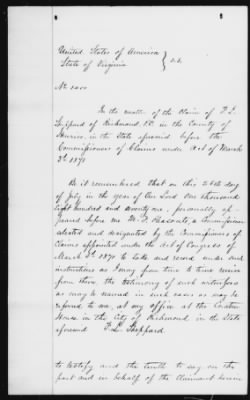 United States of America
State of Virginia } S.S.
No. 5000
In the matter of the Claim of F. L.
of Richmond, Va. in the County of
Henrico, in the State aforesaid before the
Commissioners of Claims under Act of March
3d 1871
Be it remembered that on this day
of July in the year of Our Lord One thousand
Eight hundred and seventy one, personally ap-
peared before me W. F. a Commissioner
selected and designated by the Commissioners of
Claims appointed under the Act of Congress of
March 3d 1871 to take and record under such
instructions as I may from time to time receive
from them, the testimony of such witnesses
as may be named in such cases as may be
referred to me, at my office at the Custom
House in the City of Richmond in the State
aforesaid F. L. Sheppard
to testify and the truth to say on the
part and in behalf of the Claimant